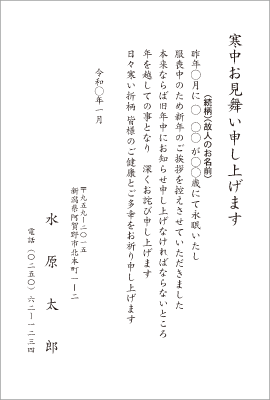 寒中お見舞い申し上げます
(続柄)(故人のお名前)
昨年〇月に 〇 〇〇 が〇〇歳にて永眠いたし
服喪中のため新年のご挨拶を控えさせていただきました
本来ならば旧年中にお知らせ申し上げなければならないところ
年を越しての事となり 深くお詫び申し上げます
日々寒い折柄 皆様のご健康とご多幸をお祈り申し上げます
令和〇年一月
〒九五九-二〇一五
新潟県阿賀野市北本町一-二
水原太郎
電話(〇二五〇)六二-一二三四